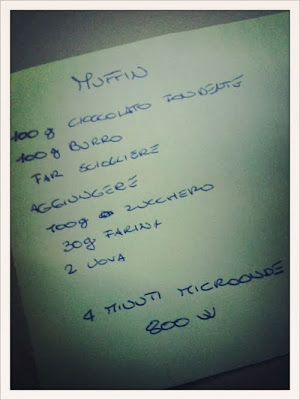 MUFFIN
100g CIOCCOLATO FONDENTE
100g BURRO
FAR SCIOGLIERE
AGGIUNGERE
100g ZUCCHERO
30g FARINA
2 UOVA
4 MINUTI MICROONDE
800 W